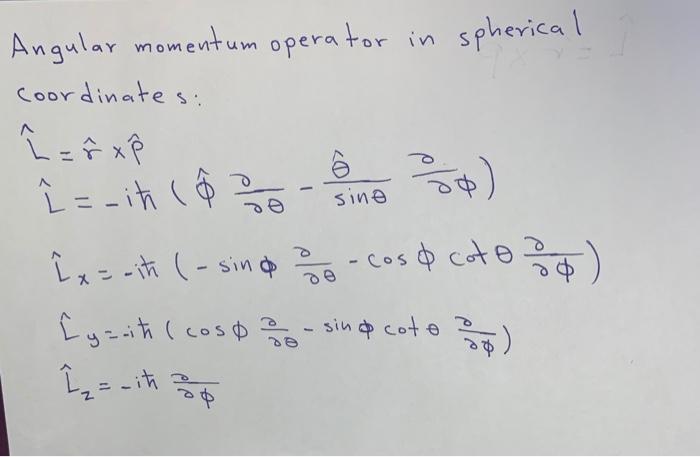 Angular momentum operator in spherical
coordinates:
L̂ = r̂ × p̂
L̂ = -iħ (ϕ̂ ∂/∂θ - θ̂/sinθ ∂/∂ϕ)
L̂x = -iħ (- sinϕ ∂/∂θ - cosϕ cotθ ∂/∂ϕ)
L̂y = -iħ (cosϕ ∂/∂θ - sinϕ cotθ ∂/∂ϕ)
L̂z = -iħ ∂/∂ϕ